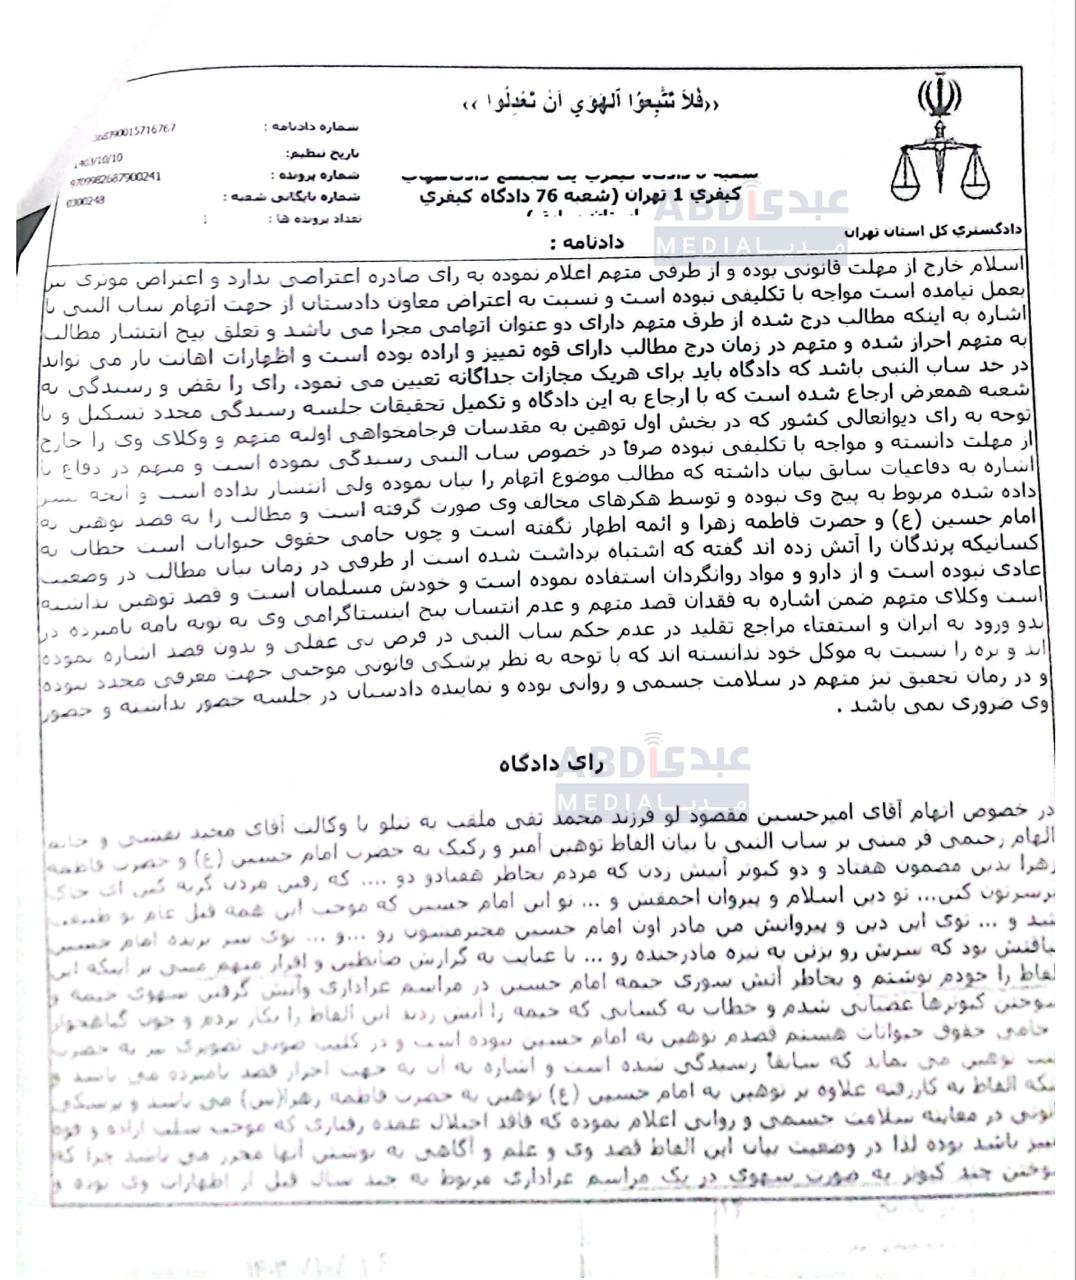 ‹‹فَلاَ تَتَّبِعُوا الْهَوَي اَنْ تَعْدِلُوا ››
شماره دادنامه : 68790015716767
تاریخ تنظیم: 1403/10/10
شماره پرونده : 9709982687900241
شماره بایگانی شعبه : 0300248
تعداد پرونده ها : 1
کیفري 1 تهران (شعبه 76 دادگاه کیفري
دادگستري کل استان تهران
دادنامه :
عبدی ABDI
مدیا MEDIA
اسلام خارج از مهلت قانونی بوده و از طرفی متهم اعلام نموده به رای صادره اعتراضی ندارد و اعتراض موثری نیز
بعمل نیامده است مواجه با تکلیفی نبوده است و نسبت به اعتراض معاون دادستان از جهت اتهام ساب النبی با
اشاره به اینکه مطالب درج شده از طرف متهم دارای دو عنوان اتهامی مجزا می باشد و تعلق پیج انتشار مطالب
به متهم احراز شده و متهم در زمان درج مطالب دارای قوه تمییز و اراده بوده است و اظهارات اهانت بار می تواند
در حد ساب النبی باشد که دادگاه باید برای هریک مجازات جداگانه تعیین می نمود، رای را نقض و رسیدگی به
شعبه همعرض ارجاع شده است که با ارجاع به این دادگاه و تکمیل تحقیقات جلسه رسیدگی مجدد تشکیل و با
توجه به رای دیوانعالی کشور که در بخش اول توهین به مقدسات فرجامخواهی اولیه متهم و وکلای وی را خارج
از مهلت دانسته و مواجه با تکلیفی نبوده صرفاً در خصوص ساب النبی رسیدگی نموده است و متهم در دفاع با
اشاره به دفاعیات سابق بیان داشته که مطالب موضوع اتهام را بیان نموده ولی انتشار نداده است و آنچه نشر
داده شده مربوط به پیج وی نبوده و توسط هکرهای مخالف وی صورت گرفته است و مطالب را به قصد توهین به
امام حسین (ع) و حضرت فاطمه زهرا و ائمه اظهار نگفته است و چون حامی حقوق حیوانات است خطاب به
کسانیکه پرندگان را آتش زده اند گفته که اشتباه برداشت شده است از طرفی در زمان بیان مطالب در وضعیت
عادی نبوده است و از دارو و مواد روانگردان استفاده نموده است و خودش مسلمان است و قصد توهین نداشته
است وکلای متهم ضمن اشاره به فقدان قصد متهم و عدم انتساب پیج اینستاگرامی وی به توبه نامه نامبرده در
بدو ورود به ایران و استفتاء مراجع تقلید در عدم حکم ساب النبی در فرض بی عقلی و بدون قصد اشاره نموده
اند و بزه را نسبت به موکل خود ندانسته اند که با توجه به نظر پزشکی قانونی موجبی جهت معرفی مجدد نبوده
و در زمان تحقیق نیز متهم در سلامت جسمی و روانی بوده و نماینده دادستان در جلسه حضور نداشته و حضور
وی ضروری نمی باشد .
رای دادگاه
عبدی ABDI
مدیا MEDIA
در خصوص اتهام آقای امیرحسین مقصود لو فرزند محمد تقی ملقب به تتلو با وکالت آقای مجید نقشی و خانم
الهام رحیمی فر مبنی بر ساب النبی با بیان الفاظ توهین آمیز و رکیک به حضرت امام حسین (ع) و حضرت فاطمه
زهرا بدین مضمون هفتاد و دو کبوتر آتیش زدن که مردم بخاطر هفتادو دو .... که رفتن مردن گریه کنن ای خاک
برسرتون کنن... تو دین اسلام و پیروان احمقش و ... تو این امام حسین که موجب این همه قتل عام تو طبیعت
شد و ... توی این دین و پیروانش من مادر اون امام حسین محترمتون رو ...و ... توی سر بریده امام حسین
بافتش بود که سرش رو بزنن به نیزه مادرجنده رو ... با عنایت به گزارش ضابطین و اقرار متهم مبنی بر اینکه این
لفاظ را خودم نوشتم و بخاطر آتش سوزی خیمه امام حسین در مراسم عزاداری وآتش گرفتن سهوی خیمه و
سوختن کبوترها عصبانی شدم و خطاب به کسانی که خیمه را آتش زدند این الفاظ را بکار بردم و چون گیاهخوار
حامی حقوق حیوانات هستم قصدم توهین به امام حسین نبوده است و در کلیپ صوتی تصویری نیز به حضرت
توهین می نماید که سابقاً رسیدگی شده است و اشاره به آن به جهت احراز قصد نامبرده می باشد و
نکه الفاظ به کاررفته علاوه بر توهین به امام حسین (ع) توهین به حضرت فاطمه زهرا(س) می باشد و پزشکی
انونی در معاینه سلامت جسمی و روانی اعلام نموده که فاقد اختلال عمده رفتاری که موجب سلب اراده و قوه
ییز باشد بوده لذا در وضعیت بیان این الفاظ قصد وی و علم و آگاهی به نوشتن آنها محرز می باشد چرا که
سوختن چند کبوتر به صورت سهوی در یک مراسم عزاداری مربوط به چند سال قبل از اظهارات وی بوده و